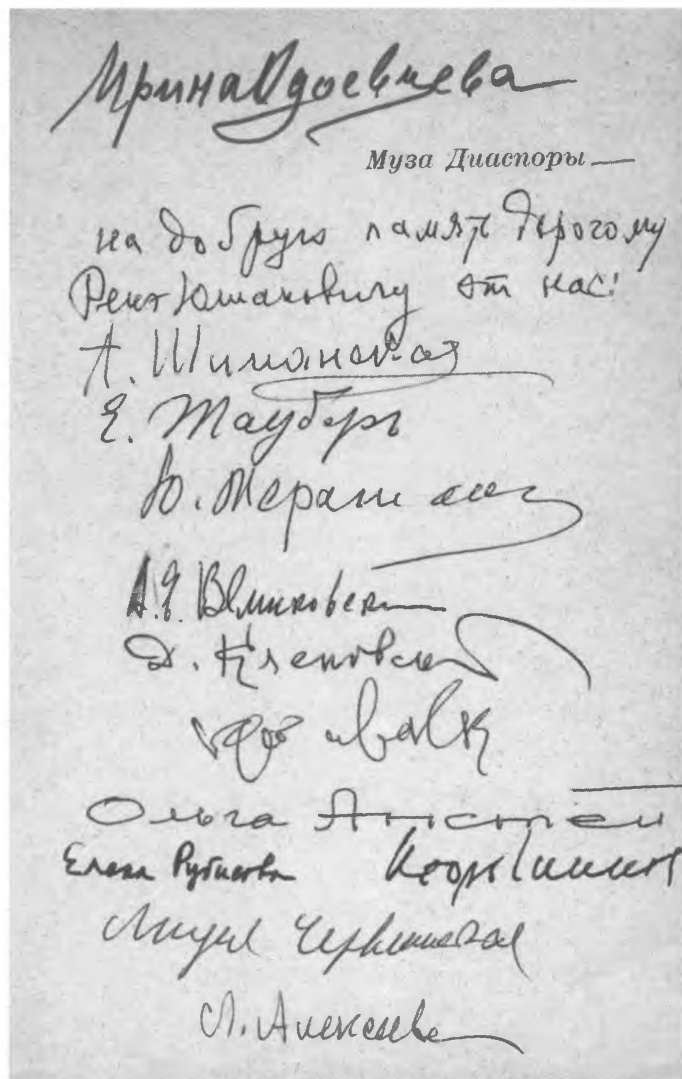 Ирина Одоевцева
Муза Диаспоры
на добрую память дорогому
от нас!
А. Шиманская
Е. Таубер
Ю. Терапиано
А.Е. Величковский
Д. Кленовский
Ольга Анстей
Елена Рубисова Игорь Чиннов
Лидия Червинская
Л. Алексеева